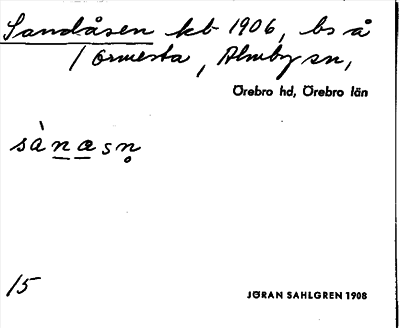 Sandåsen kb 1906, bs å
1 Ormesta, Almby sn,
Örebro hd, Örebro län
sànæsn̥
15
JÖRAN SAHLGREN 1908